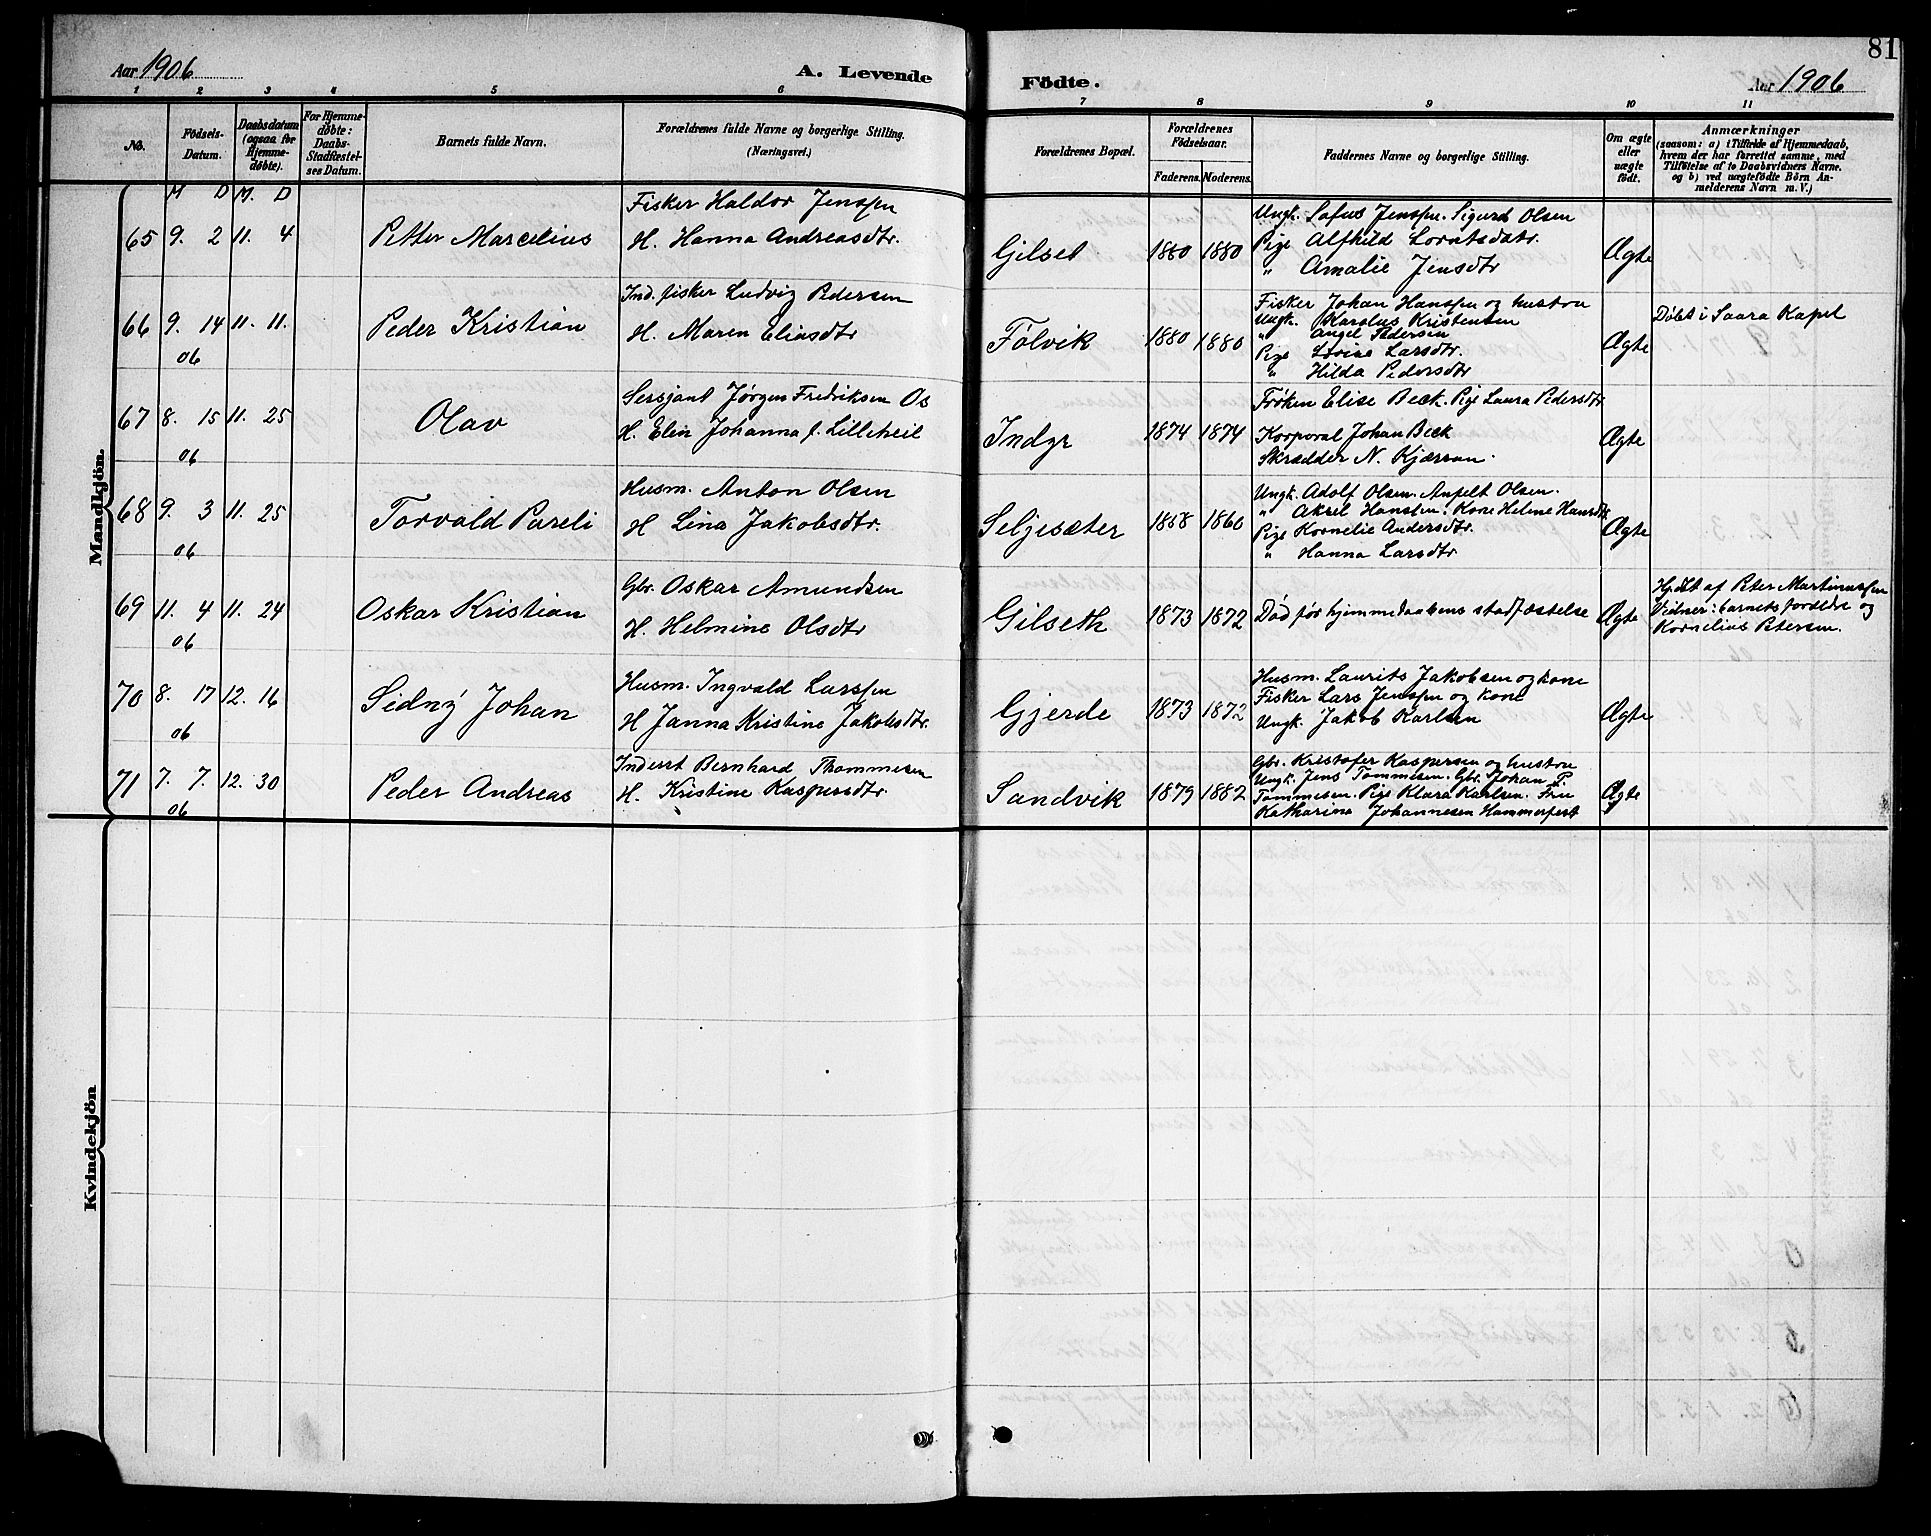 81
Aar 1906
A. Levende
Födte.
Aar 1906
1 2 3 4 5 6 7 8 9 10 11
No.
Födsels-
Datum.
Daabsdatum
(ogsaa for
Hjemme-
døbte).
For Hjemme-
døbte:
Daabs-
Stadfæstel-
ses Datum.
Barnets fulde Navn.
Forældrenes fulde Navne og borgerlige Stilling.
(Næringsvei.)
Forældrenes Bopæl.
Forældrenes
Fødselsaar.
Faderens. Moderens.
Faddernes Navne og borgerlige Stilling.
Om ægte
eller
uægte
født.
Anmærkninger
(saasom: a) i Tilfælde af Hjemmedaab,
hvem der har forrettet samme, med
Tilføielse af to Daabsvidners Navne.
og b) ved uægtefødte Börn An-
melderens Navn m. V.)
Mandkjön.
M D M. D
65 9. 2 11. 4
Petter Marcelius
Fisker Haldor Jenssen
H. Hanna Andreasdtr.
Gilset
1880 1880
Ungk. Sofus Jenssen. Sigurd Olsen
Pige Alfhild Lorntsdatr.
" Amalie Jensdtr
Ægte
66 9. 14 11. 11.
06
Peder Kristian
Ind. fisker Ludvig Pedersen
H. Maren Eliasdtr
Følvik
1880 1880
Fisker Johan Hanssen og hustru
Ungk. Karolus Kristensen
" Angel Pedersen
Pige Lovise Larsdtr.
" Hilda Pedersdtr
Ægte
Døbt i Saara Kapel
67 8. 15 11. 25
06
Olav
Sersjant Jørgen Fredriksen Os
H. Elin Johanna f. Lilleheil
Indyr
1874 1874
Frøken Elise Beck. Pige Laura Pedersdtr
Korporal Johan Beck
Skrædder N. Kjærran.
Ægte
68 9. 3 11. 25
06
Torvald Pareli
Husm. Anton Olsen
H Lina Jakobsdtr.
Seljesæter
1858 1860
Ungk. Adolf Olsen. Anfelt Olsen.
" Aksel Hanssen. Kone Helene Hansdtr
Pige Kornelie Andersdtr.
" Hanna Larsdtr
Ægte
69 11. 4 11. 24
06
Oskar Kristian
Gbr. Oskar Amundsen
H. Helmine Olsdtr
Gilseth
1873 1872
Død før hjemmedaabens stadfæstelse
Ægte
Hjdøbt af Peter Martinussen
Vidner: barnets forældre og
Kornelius Petersen.
70 8. 17 12. 16
06
Sidny Johan
Husm. Ingvald Larssen
H Janna Kristine Jakobsdtr.
Gjerde
1873 1872
Husm. Laurits Jakobsen og kone
Fisker Lars Jenssen og kone
Ungk. Jakob Karlsen
Ægte
71 7. 7. 12. 30
06
Peder Andreas
Inderst Bernhard Thommesen
H. Kristine Kaspersdtr
Sandvik
1879 1882
Gbr. Kristofer Kaspersen og hustru
Ungk. Jens Tommesen. Gbr. Johan P.
Tommesen. Pige Klara Karlsen. Fru
Katharina Johannesen Hammerfest
Ægte
Kvindekjön